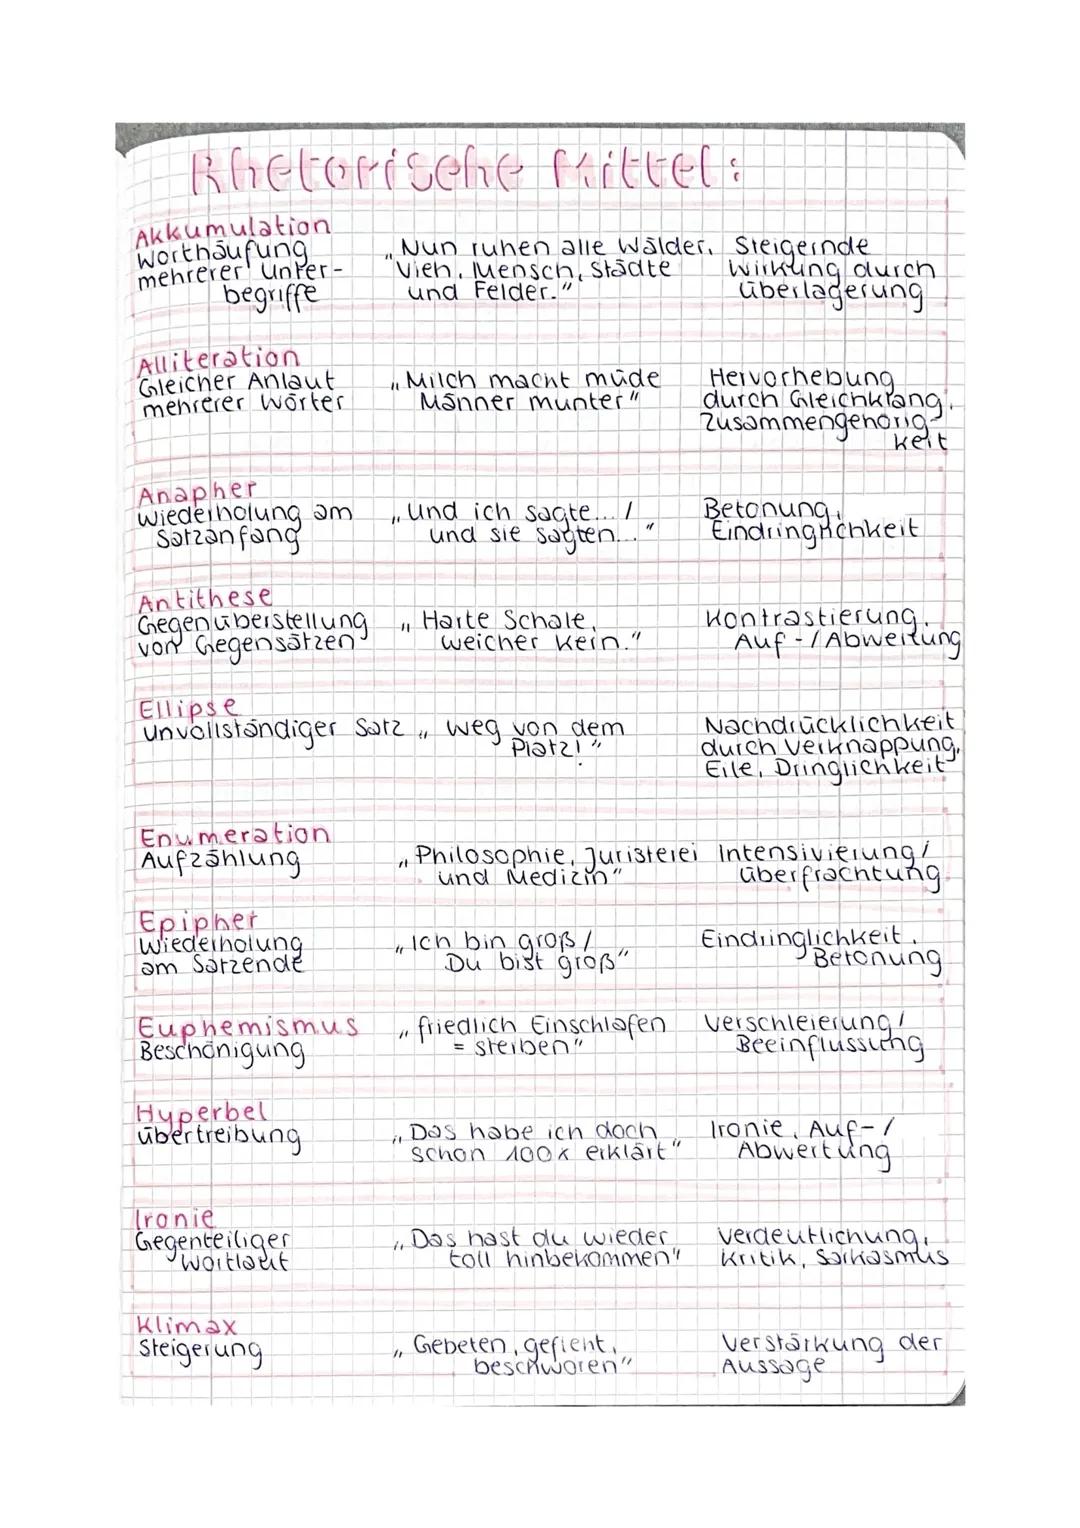 Rhetorische Mittel:
Akkumulation
Worthäufung
mehrerer Unter-
begriffe
„Nun ruhen alle Wälder,
Vieh, Mensch, Städte
und Felder."
Steigernde
Wirkung durch
Überlagerung
Alliteration
Gleicher Anlaut
mehrerer Wörter
„Milch macht müde
Männer munter"
Hervorhebung
durch Gleichklang,
Zusammengehörig-
keit
Anapher
Wiederholung am
Satzanfang
„Und ich sagte... /
und sie sagten..."
Betonung,
Eindringlichkeit
Antithese
Gegenüberstellung
von Gegensätzen
„Harte Schale,
weicher Kern."
Kontrastierung,
Auf-/Abwertung
Ellipse
unvollständiger Satz
„Weg von dem
Platz!"
Nachdrücklichkeit
durch Verknappung,
Eile, Dringlichkeit
Enumeration
Aufzählung
„Philosophie, Juristerei
und Medizin"
Intensivierung/
Überfrachtung
Epipher
Wiederholung
am Satzende
„Ich bin groß /
Du bist groß"
Eindringlichkeit,
Betonung
Euphemismus
Beschönigung
„friedlich Einschlafen
= sterben"
Verschleierung/
Beeinflussung
Hyperbel
Übertreibung
„Das habe ich doch
schon 100x erklärt"
Ironie, Auf-/
Abwertung
Ironie
Gegenteiliger
Wortlaut
„Das hast du wieder
toll hinbekommen"
Verdeutlichung,
Kritik, Sarkasmus
Klimax
Steigerung
„Gebeten, gefleht,
beschworen"
Verstärkung der
Aussage